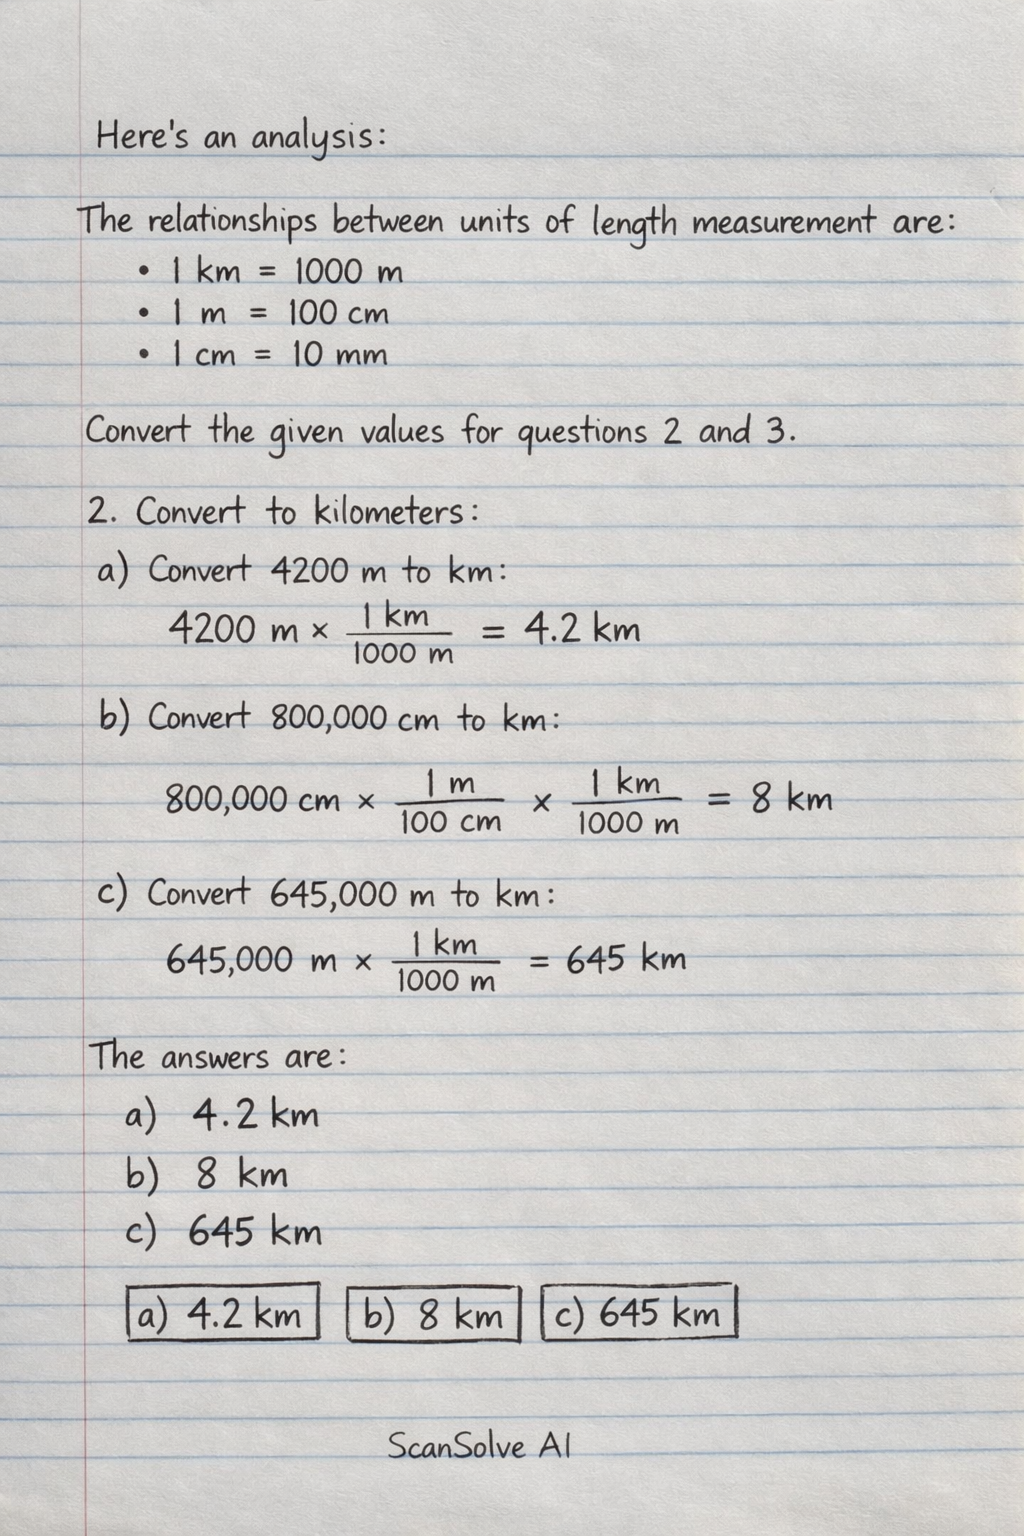 Here's an analysis:
The relationships between units of length measurement are:
• 1 km = 1000 m
• 1 m = 100 cm
• 1 cm = 10 mm
Convert the given values for questions 2 and 3.
2. Convert to kilometers:
a) Convert 4200 m to km:
4200 m × 1 km / 1000 m = 4.2 km
b) Convert 800,000 cm to km:
800,000 cm × 1 m / 100 cm × 1 km / 1000 m = 8 km
c) Convert 645,000 m to km:
645,000 m × 1 km / 1000 m = 645 km
The answers are:
a) 4.2 km
b) 8 km
c) 645 km
a) 4.2 km b) 8 km c) 645 km
ScanSolve AI